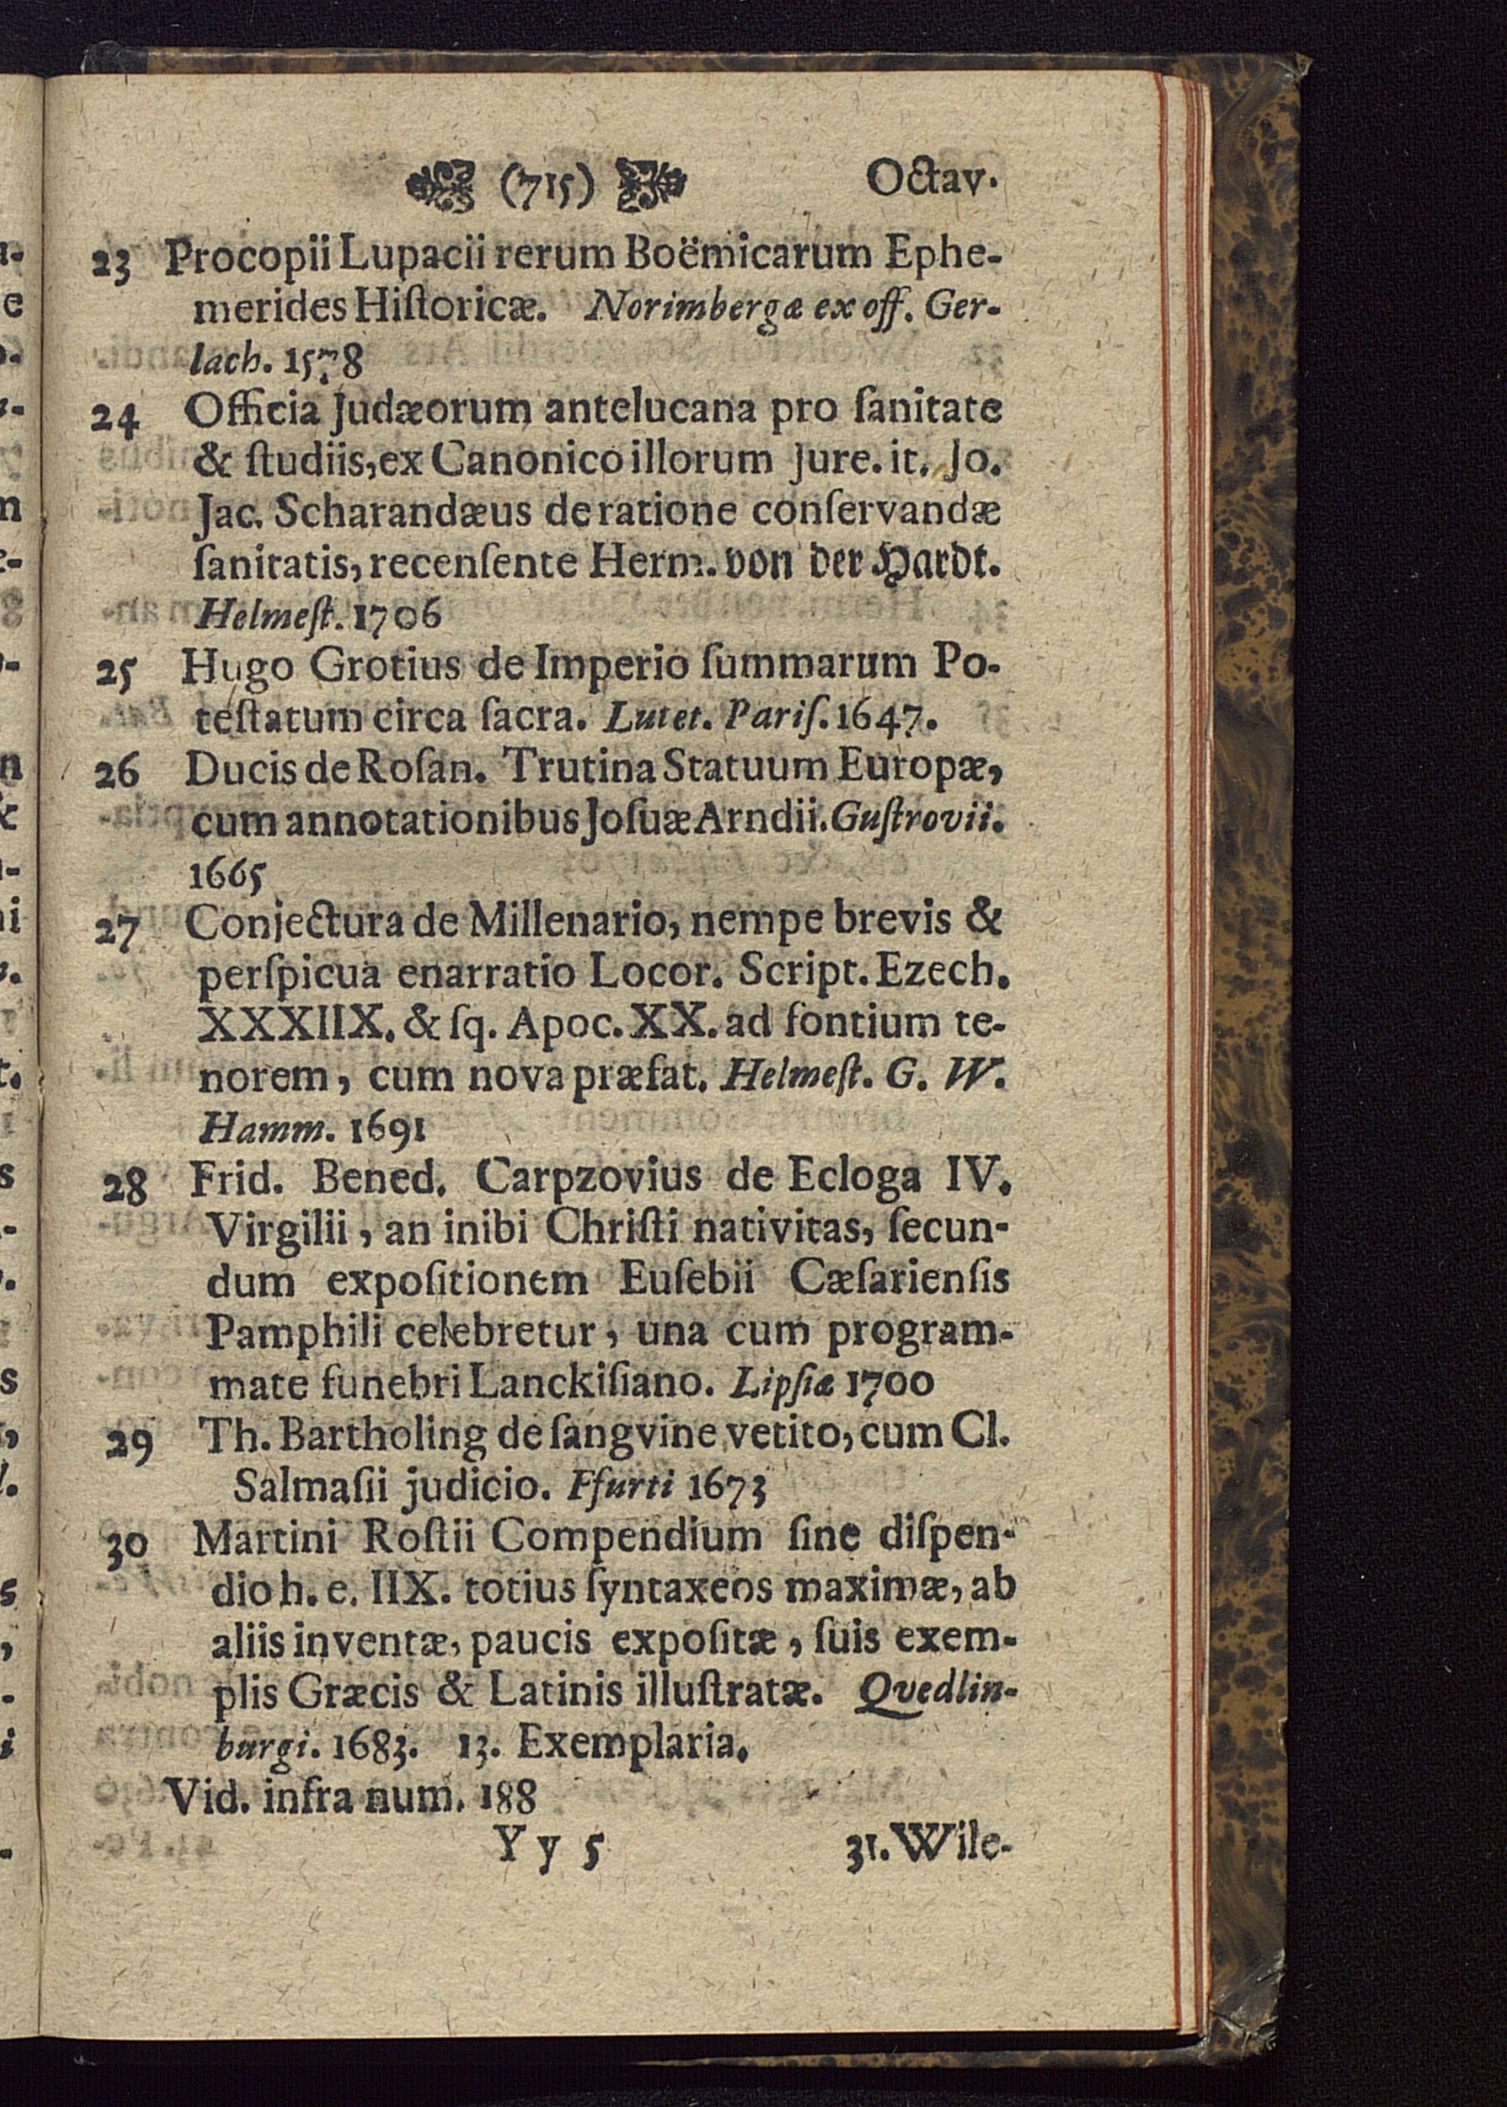 (715) Octav.
23 Procopii Lupacii rerum Boëmicarum Ephe-
merides Hiſtoricæ. Norimbergæ ex off. Ger-
lach. 1578
24 Officia Judæorum antelucana pro ſanitate
& ſtudiis, ex Canonico illorum Jure. it. Jo.
Jac. Scharandæus de ratione conſervandæ
ſanitatis, recenſente Herm. von der Hardt.
Helmeſt. 1706
25 Hugo Grotius de Imperio ſummarum Po-
teſtatum circa ſacra. Lutet. Pariſ. 1647.
26 Ducis de Roſan. Trutina Statuum Europæ,
cum annotationibus Joſuæ Arndii. Guſtrovii.
1665
27 Conjectura de Millenario, nempe brevis &
perſpicua enarratio Locor. Script. Ezech.
XXXIIX. & ſq. Apoc. XX. ad fontium te-
norem, cum nova præfat. Helmeſt. G. W.
Hamm. 1691
28 Frid. Bened. Carpzovius de Ecloga IV.
Virgilii, an inibi Chriſti nativitas, ſecun-
dum expoſitionem Euſebii Cæſarienſis
Pamphili celebretur, una cum program-
mate funebri Lanckiſiano. Lipſiæ 1700
29 Th. Bartholing de ſangvine vetito, cum Cl.
Salmaſii judicio. Ffurti 1673
30 Martini Roſtii Compendium ſine diſpen-
dio h. e. IIX. totius ſyntaxeos maximæ, ab
aliis inventæ, paucis expoſitæ, ſuis exem-
plis Græcis & Latinis illuſtratæ. Qvedlin-
burgi. 1683. 13. Exemplaria.
Vid. infra num. 188
Y y 5 31. Wile-